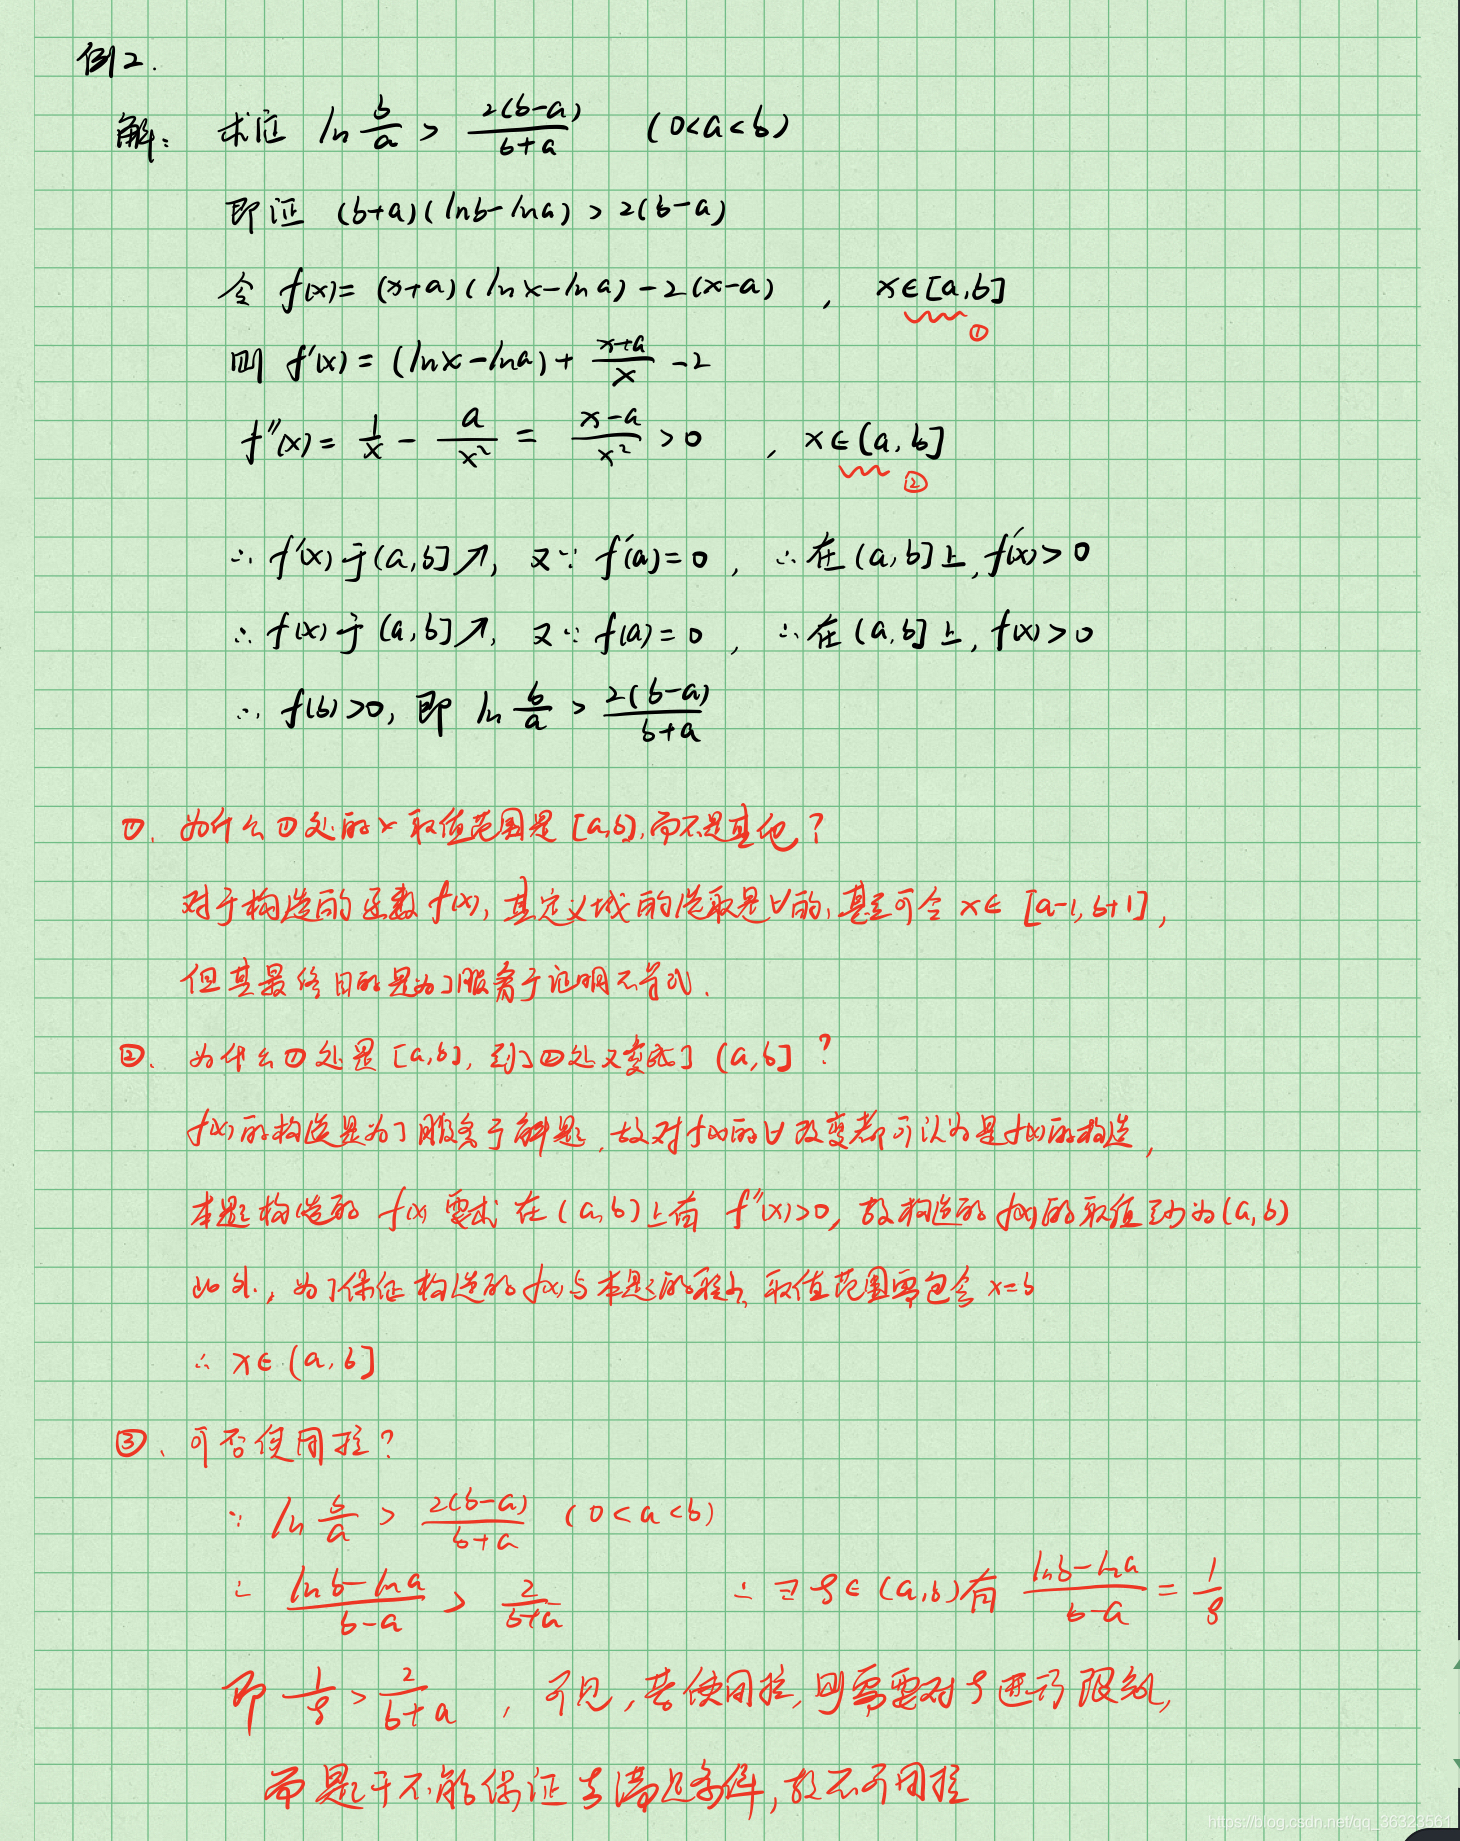 例2.
解: 求证 ln b/a > 2(b-a)/(b+a) (0<a<b)
即证 (b+a)(lnb-lna) > 2(b-a)
令 f(x)= (x+a)(lnx-lna)-2(x-a) , x∈[a,b]
①
则 f'(x) = (lnx-lna)+ (x+a)/x -2
f''(x) = 1/x - a/x² = (x-a)/x² >0 , x∈(a,b]
②
∴ f'(x)于(a,b]↗, 又∵ f'(a)=0 , ∴在(a,b]上, f'(x)>0
∴ f(x)于(a,b]↗, 又∵ f(a)=0 , ∴在(a,b]上, f(x)>0
∴ f(b)>0, 即 ln b/a > 2(b-a)/(b+a)
①. 为什么①处的x取值范围是[a,b],而不是其他?
对于构造的函数f(x), 其定义域的选取是∀的, 甚至可令 x∈ [a-1, b+1],
但其最终目的是为了服务于证明不等式.
②. 为什么①处是[a,b], 到了②处又变成了(a,b]?
f(x)的构造是为了服务于解题, 故对f(x)的∀改变都可认为是f(x)的构造,
本题构造的 f(x) 要求 在(a,b)上有 f''(x)>0, 故构造的f(x)的取值至少为(a,b)
此外, 为了保证构造的f(x)与本题的, 取值范围需包含 x=b
∴ x∈(a,b]
③. 可否使用拉?
∵ ln b/a > 2(b-a)/(b+a) (0<a<b)
∴ (lnb-lna)/(b-a) > 2/(b+a) ∴ ∃ξ∈(a,b)有 (lnb-lna)/(b-a) = 1/ξ
即 1/ξ > 2/(b+a) , 可见, 若使用拉, 则需要对ξ进行限制,
而题干不能保证ξ满足条件, 故不可用拉
https://blog.csdn.net/qq_36323561